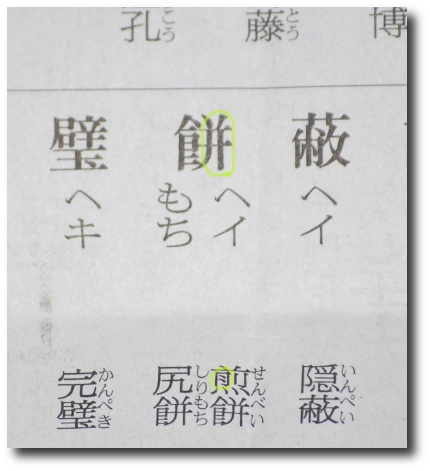 博
藤とう
孔こう
蔽
餅
璧
ヘイ
ヘイ
もち
ヘキ
隠蔽いんぺい
煎餅せんべい
尻餅しりもち
完璧かんぺき